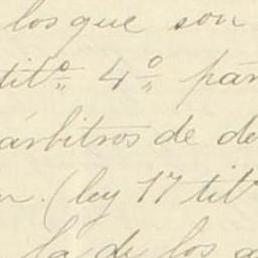 los que son
titº 4º pár
árbitros de de
n. (ley 17 titº
la de los a